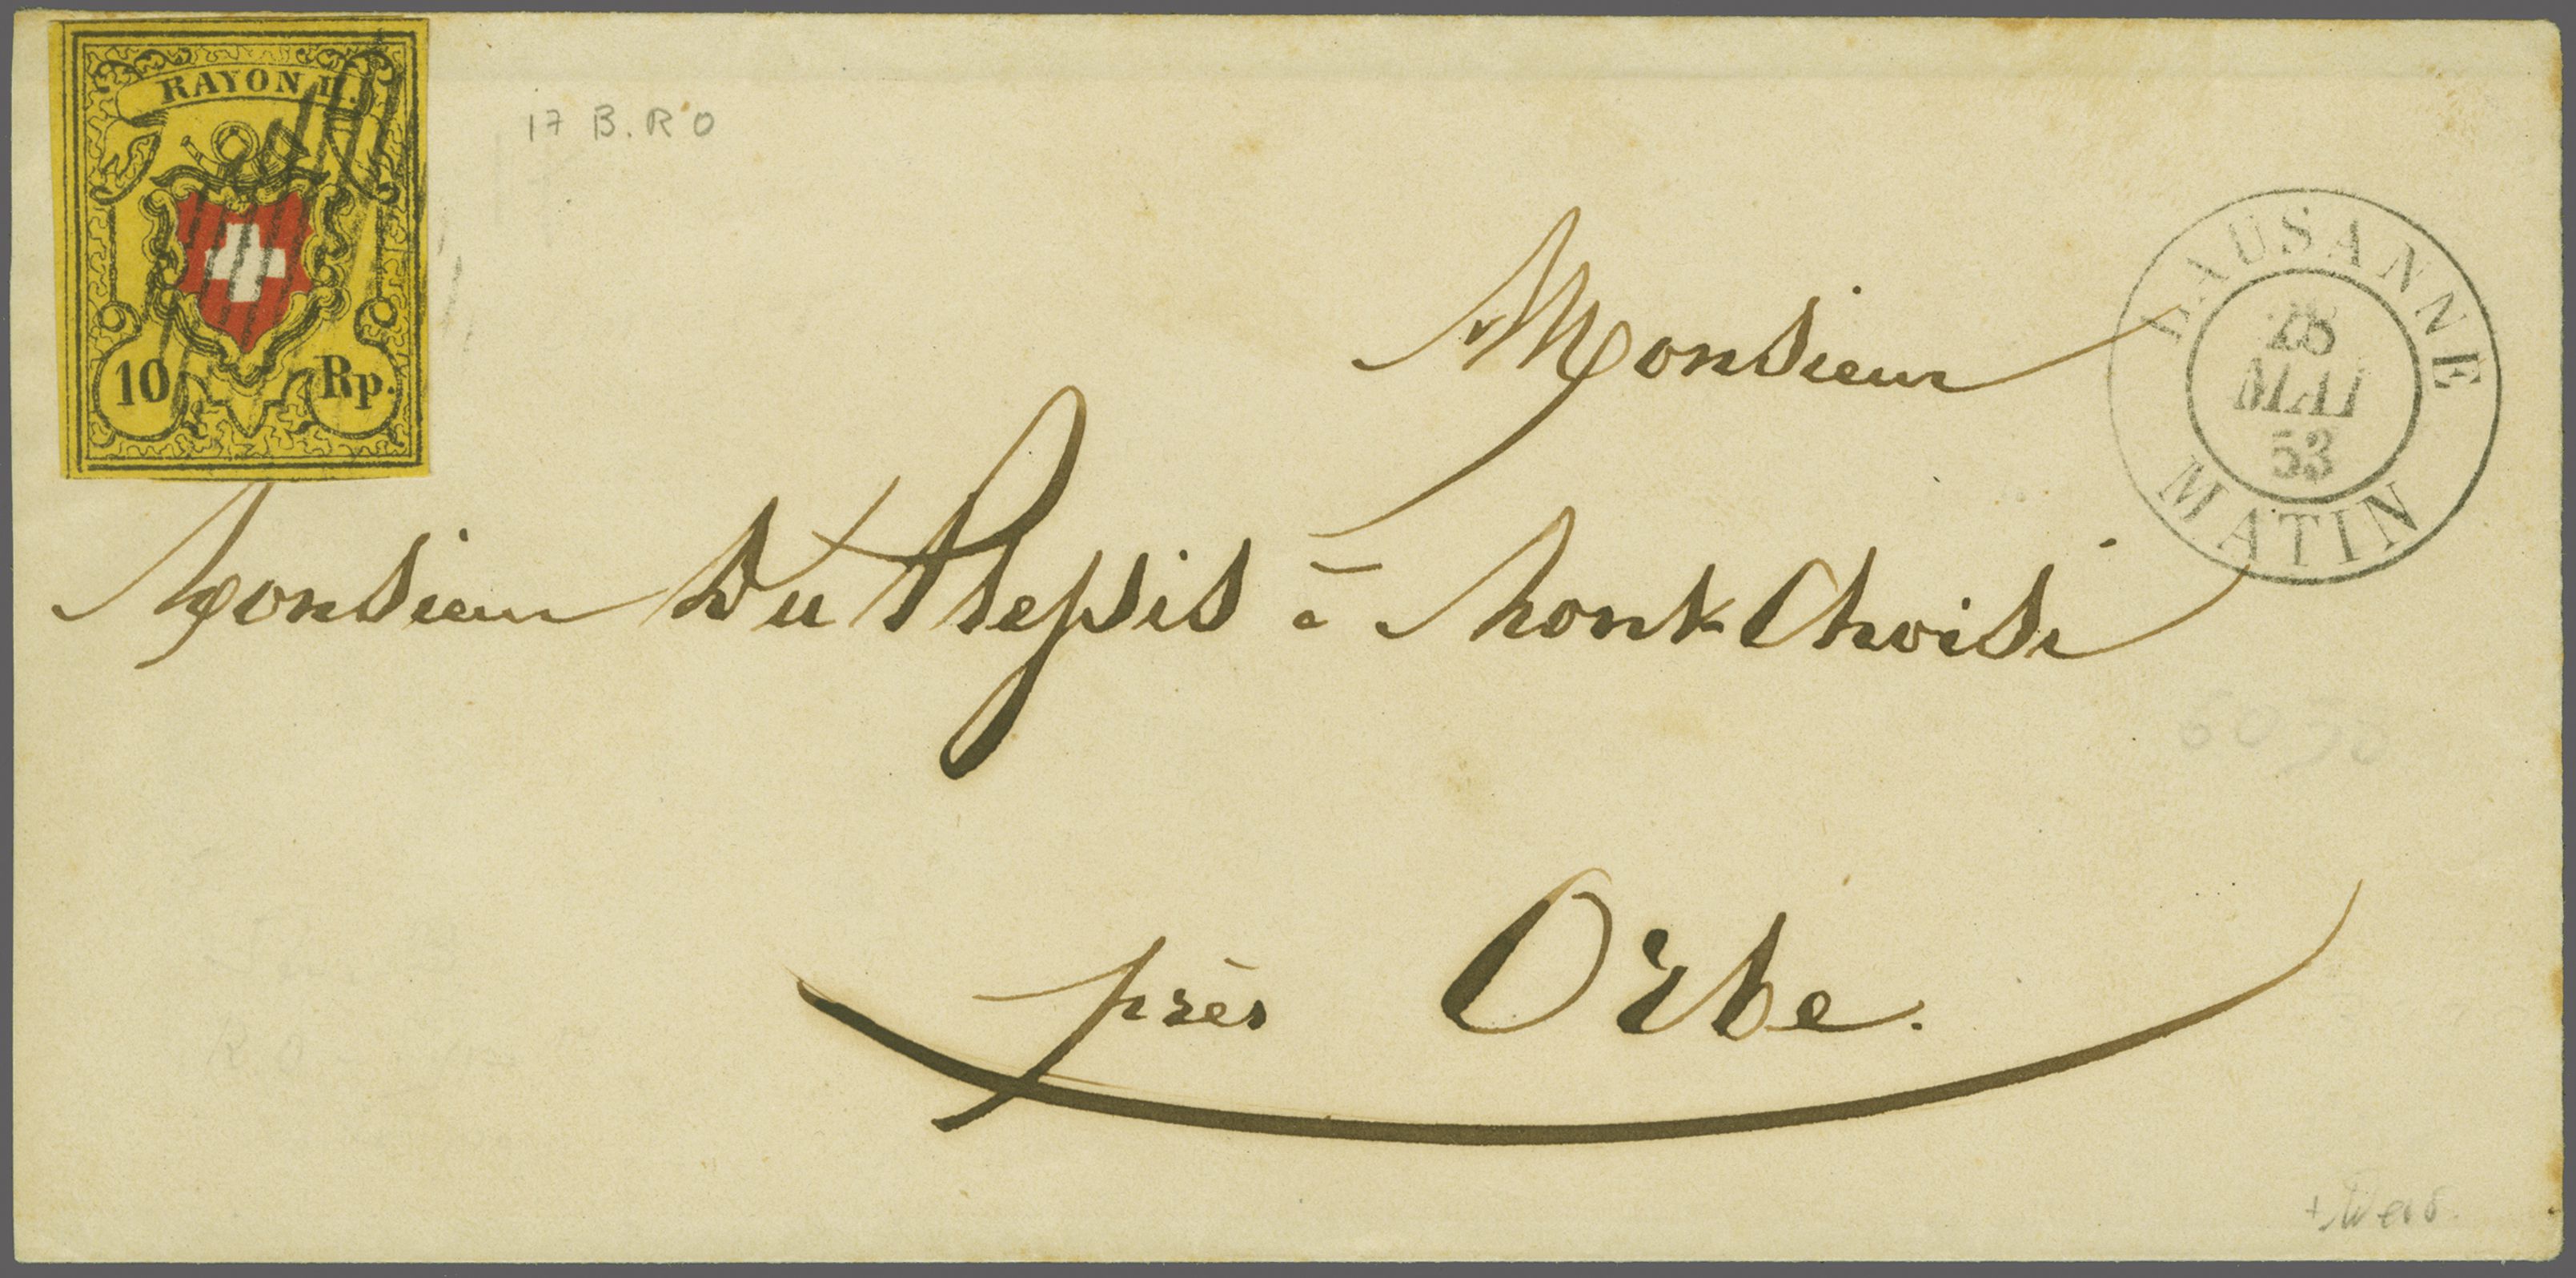 RAYON II.
10 Rp.
17 B. R O
LAUSANNE
28
MAI
53
MATIN
Monsieur
Monsieur Du Plessis à Mont Choisi
près Orbe.